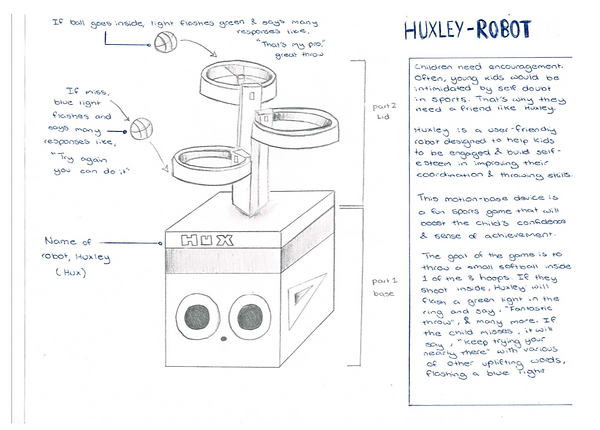 If ball goes inside, light flashes green & says many
responses like,
"That's my pro,"
great throw
If miss,
blue light
flashes and
says many
responses like,
"Try again
you can do it"
Name of
robot, Huxley
(Hux)
HUX
part 2
Lid
part 1
base
HUXLEY-ROBOT
Children need encouragement.
Often, young kids would be
intimidated by self doubt
in sports. That's why they
need a friend like Huxley.
Huxley is a user-friendly
robot designed to help kids
to be engaged & build self-
esteem in improving their
coordination & throwing skills.
This motion-base device is
a fun sports game that will
boost the child's confidence
& sense of achievement.
The goal of the game is to
throw a small softball inside
1 of the 3 hoops. If they
shoot inside, Huxley will
flash a green light in the
ring and say, "Fantastic
throw", & many more. If
the child misses, it will
say, "keep trying your
nearly there" with various
of other uplifting words,
flashing a blue light